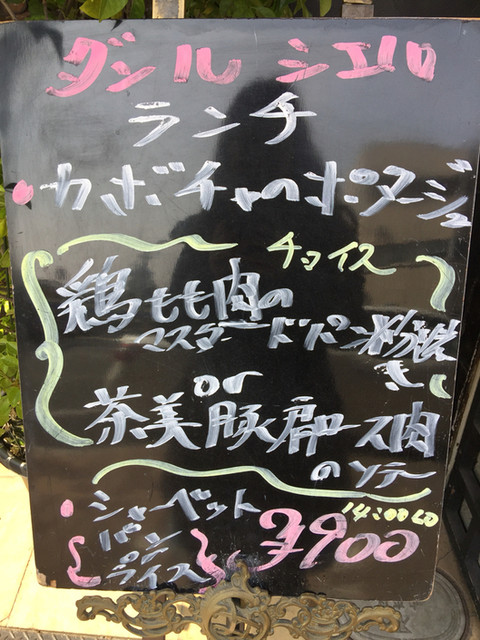 ダンル シエル
ランチ
カボチャのポタージュ
チョイス
鶏もも肉の
マスタードパン粉焼き
or
茶美豚肩ロース肉
のソテー
シャーベット
パン
ライス
¥900
14:00 LO